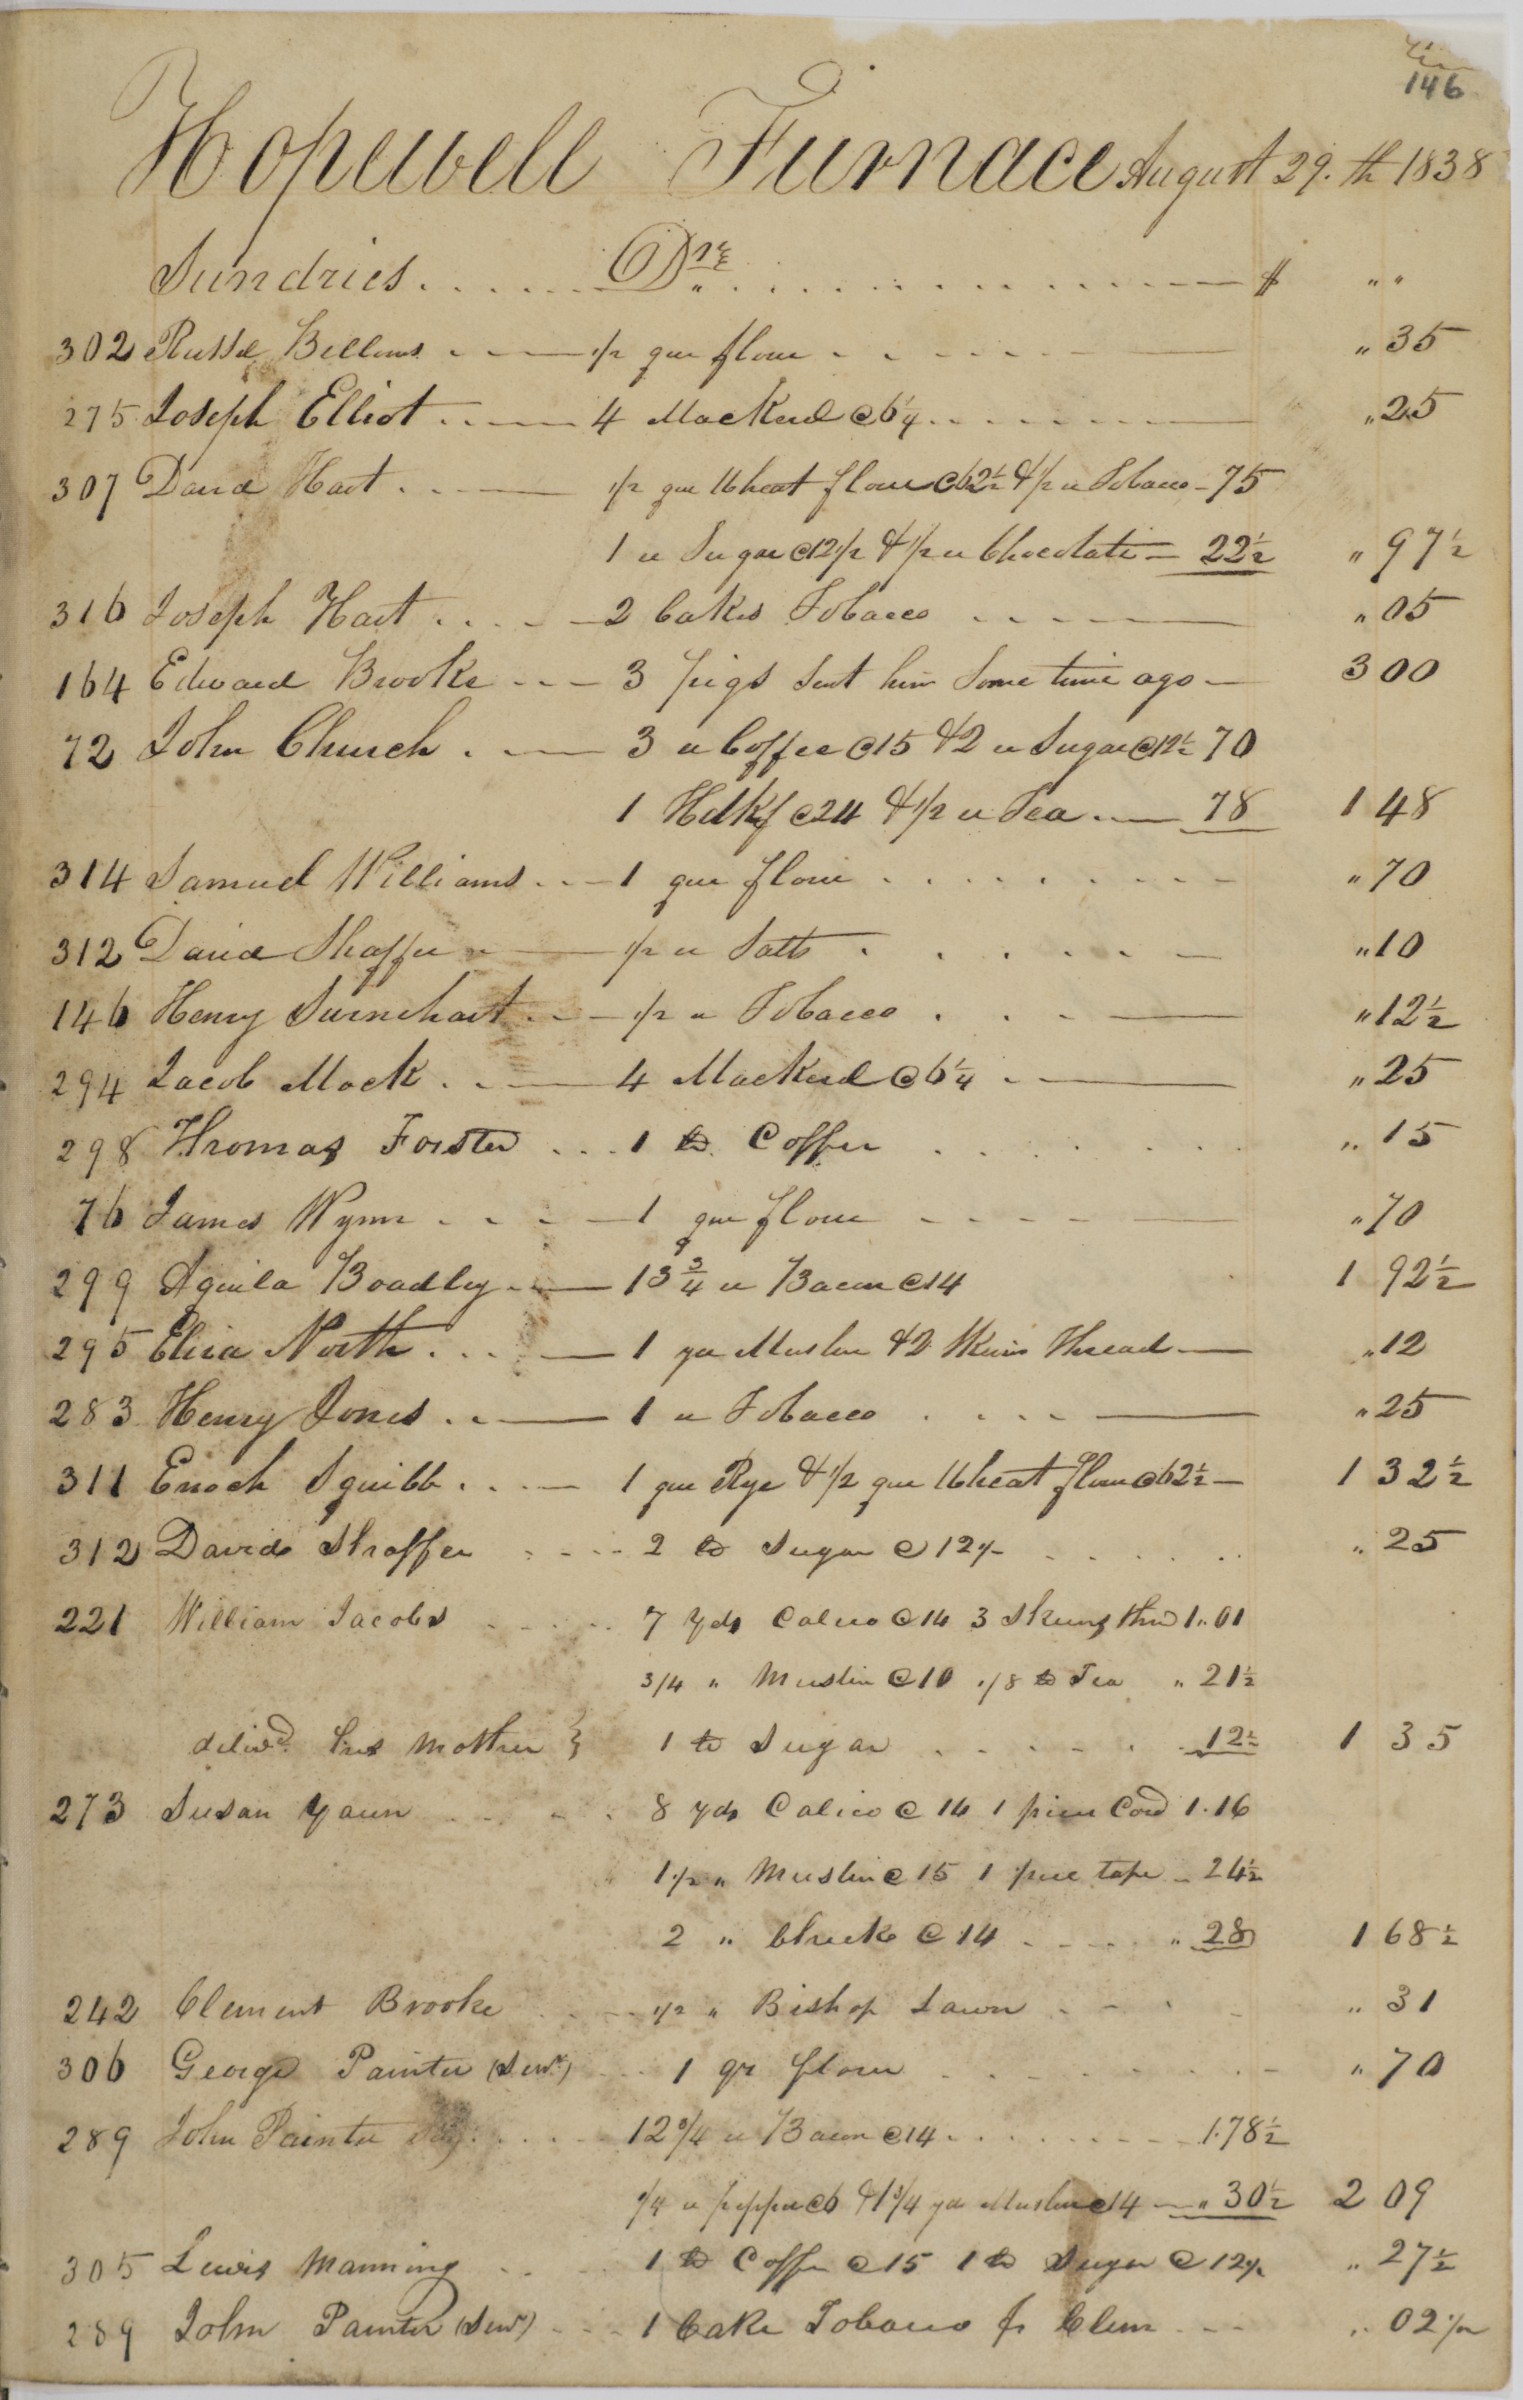 146
Hopewell Furnace August 29.th 1838
Sundries Drs $ " "
302 Russel Bellows 1/2 qur flour " 35
275 Joseph Elliot 4 Mackerel @ 6 1/4 " 25
307 David Hart 1/2 qur Wheat flour @ 62 1/2 & 1/2 " Tobacco - 75
1 " Sugar @ 12 1/2 & 1/2 " Chocolate - 22 1/2 " 97 1/2
316 Joseph Hart 2 Cakes Tobacco " 05
164 Edward Brooke 3 pigs sent him some time ago 3 00
72 John Church 3 " Coffee @ 15 & 2 " Sugar @ 12 1/2 70
1 Hdkf @ 24 & 1/2 " Tea 78 1 48
314 Samuel Williams 1 qur flour " 70
312 David Shaffer 1/2 " Salts " 10
146 Henry Surnehart 1/2 " Tobacco " 12 1/2
294 Jacob Mock 4 Mackerel @ 6 1/4 " 25
298 Thomas Forster 1 lb Coffee " 15
76 James Wynn 1 qur flour " 70
299 Aquila Boadley 13 3/4 " Bacon @ 14 1 92 1/2
295 Eliza North 1 yd Muslin & 2 Skein Thread " 12
283 Henry Jones 1 " Tobacco " 25
311 Enoch Squibb 1 qur Rye & 1/2 qur Wheat flour @ 62 1/2 1 32 1/2
312 David Shaffer 2 lb Sugar @ 12 1/2 " 25
221 William Jacobs 7 yds Calico @ 14 3 Skeins thrd 1.01
3/4 " Muslin @ 10 1/8 lb Tea " 21 1/2
delivd. his Mother } 1 lb Sugar 12 1/2 1 35
273 Susan Yaun 8 yds Calico @ 14 1 piece Cord 1.16
1 1/2 " Muslin @ 15 1 piece tape " 24 1/2
2 " Check @ 14 " 28 1 68 1/2
242 Clement Brooke 1/2 " Bishop Lawn " 31
306 George Painter (Senr) 1 qr flour " 70
289 John Painter 12 3/4 " Bacon @ 14 1.78 1/2
1/4 " pepper @ 6 & 1 3/4 yd Muslin @ 14 " 30 1/2 2 09
305 Lewis Manning 1 lb Coffee @ 15 1 lb Sugar @ 12 1/2 " 27 1/2
289 John Painter (Senr) 1 Cake Tobacco pr Clem " 02 1/2